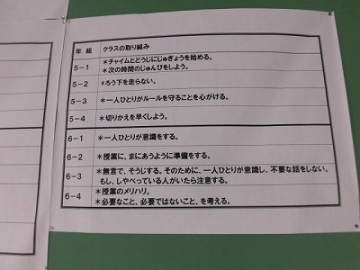 年 組 クラスの取り組み
5-1 ＊チャイムとどうじにじゅぎょうを始める。
＊次の時間のじゅんびをしよう。
5-2 ＊ろう下を走らない。
5-3 ＊一人ひとりがルールを守ることを心がける。
5-4 ＊切りかえを早くしよう。
6-1 ＊一人ひとりが意識をする。
6-2 ＊授業に、まにあうように準備をする。
6-3 ＊無言で、そうじする。そのために、一人ひとりが意識し、不要な話をしない。
もし、しゃべっている人がいたら注意する。
6-4 ＊授業のメリハリ。
＊必要なこと、必要ではないこと、を考える。